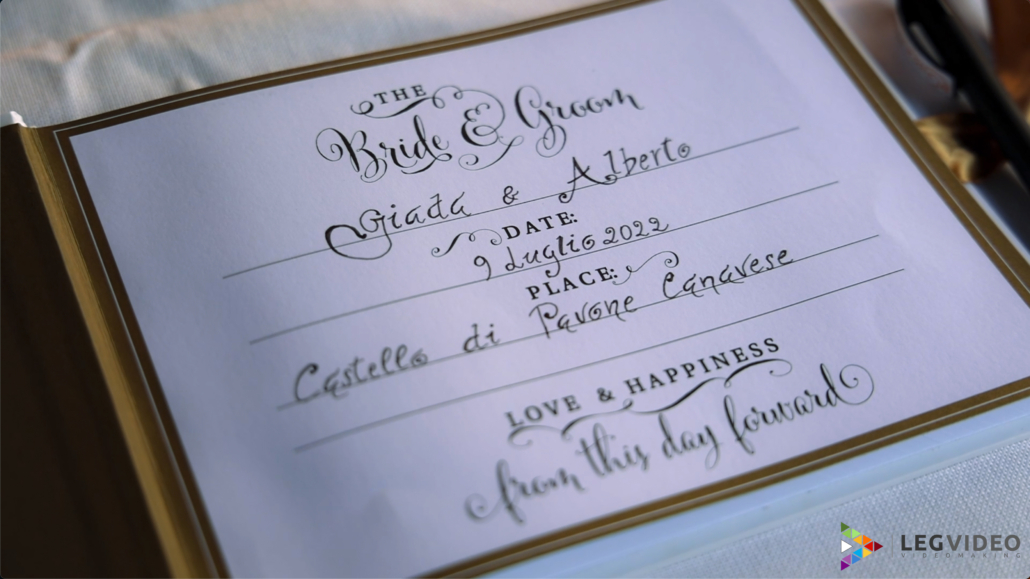 THE
Bride & Groom
Giada & Alberto
DATE:
9 Luglio 2022
PLACE:
Castello di Pavone Canavese
LOVE & HAPPINESS
from this day forward
LEGVIDEO
VIDEOMAKING